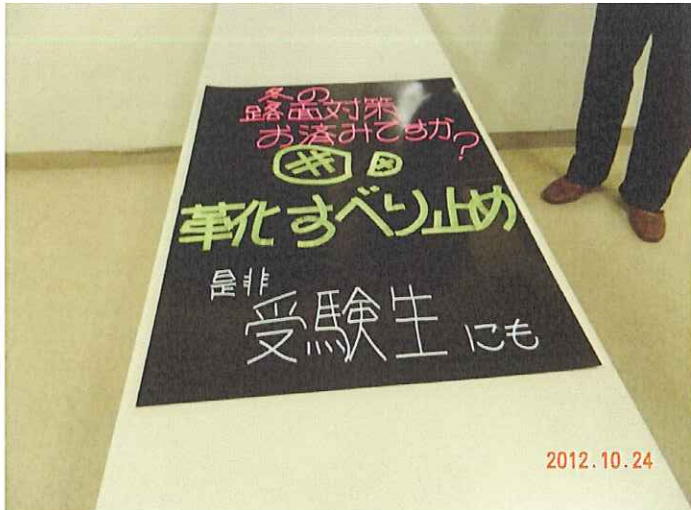 冬の
路面対策
お済みですか?
靴すべり止め
是非
受験生にも
2012.10.24